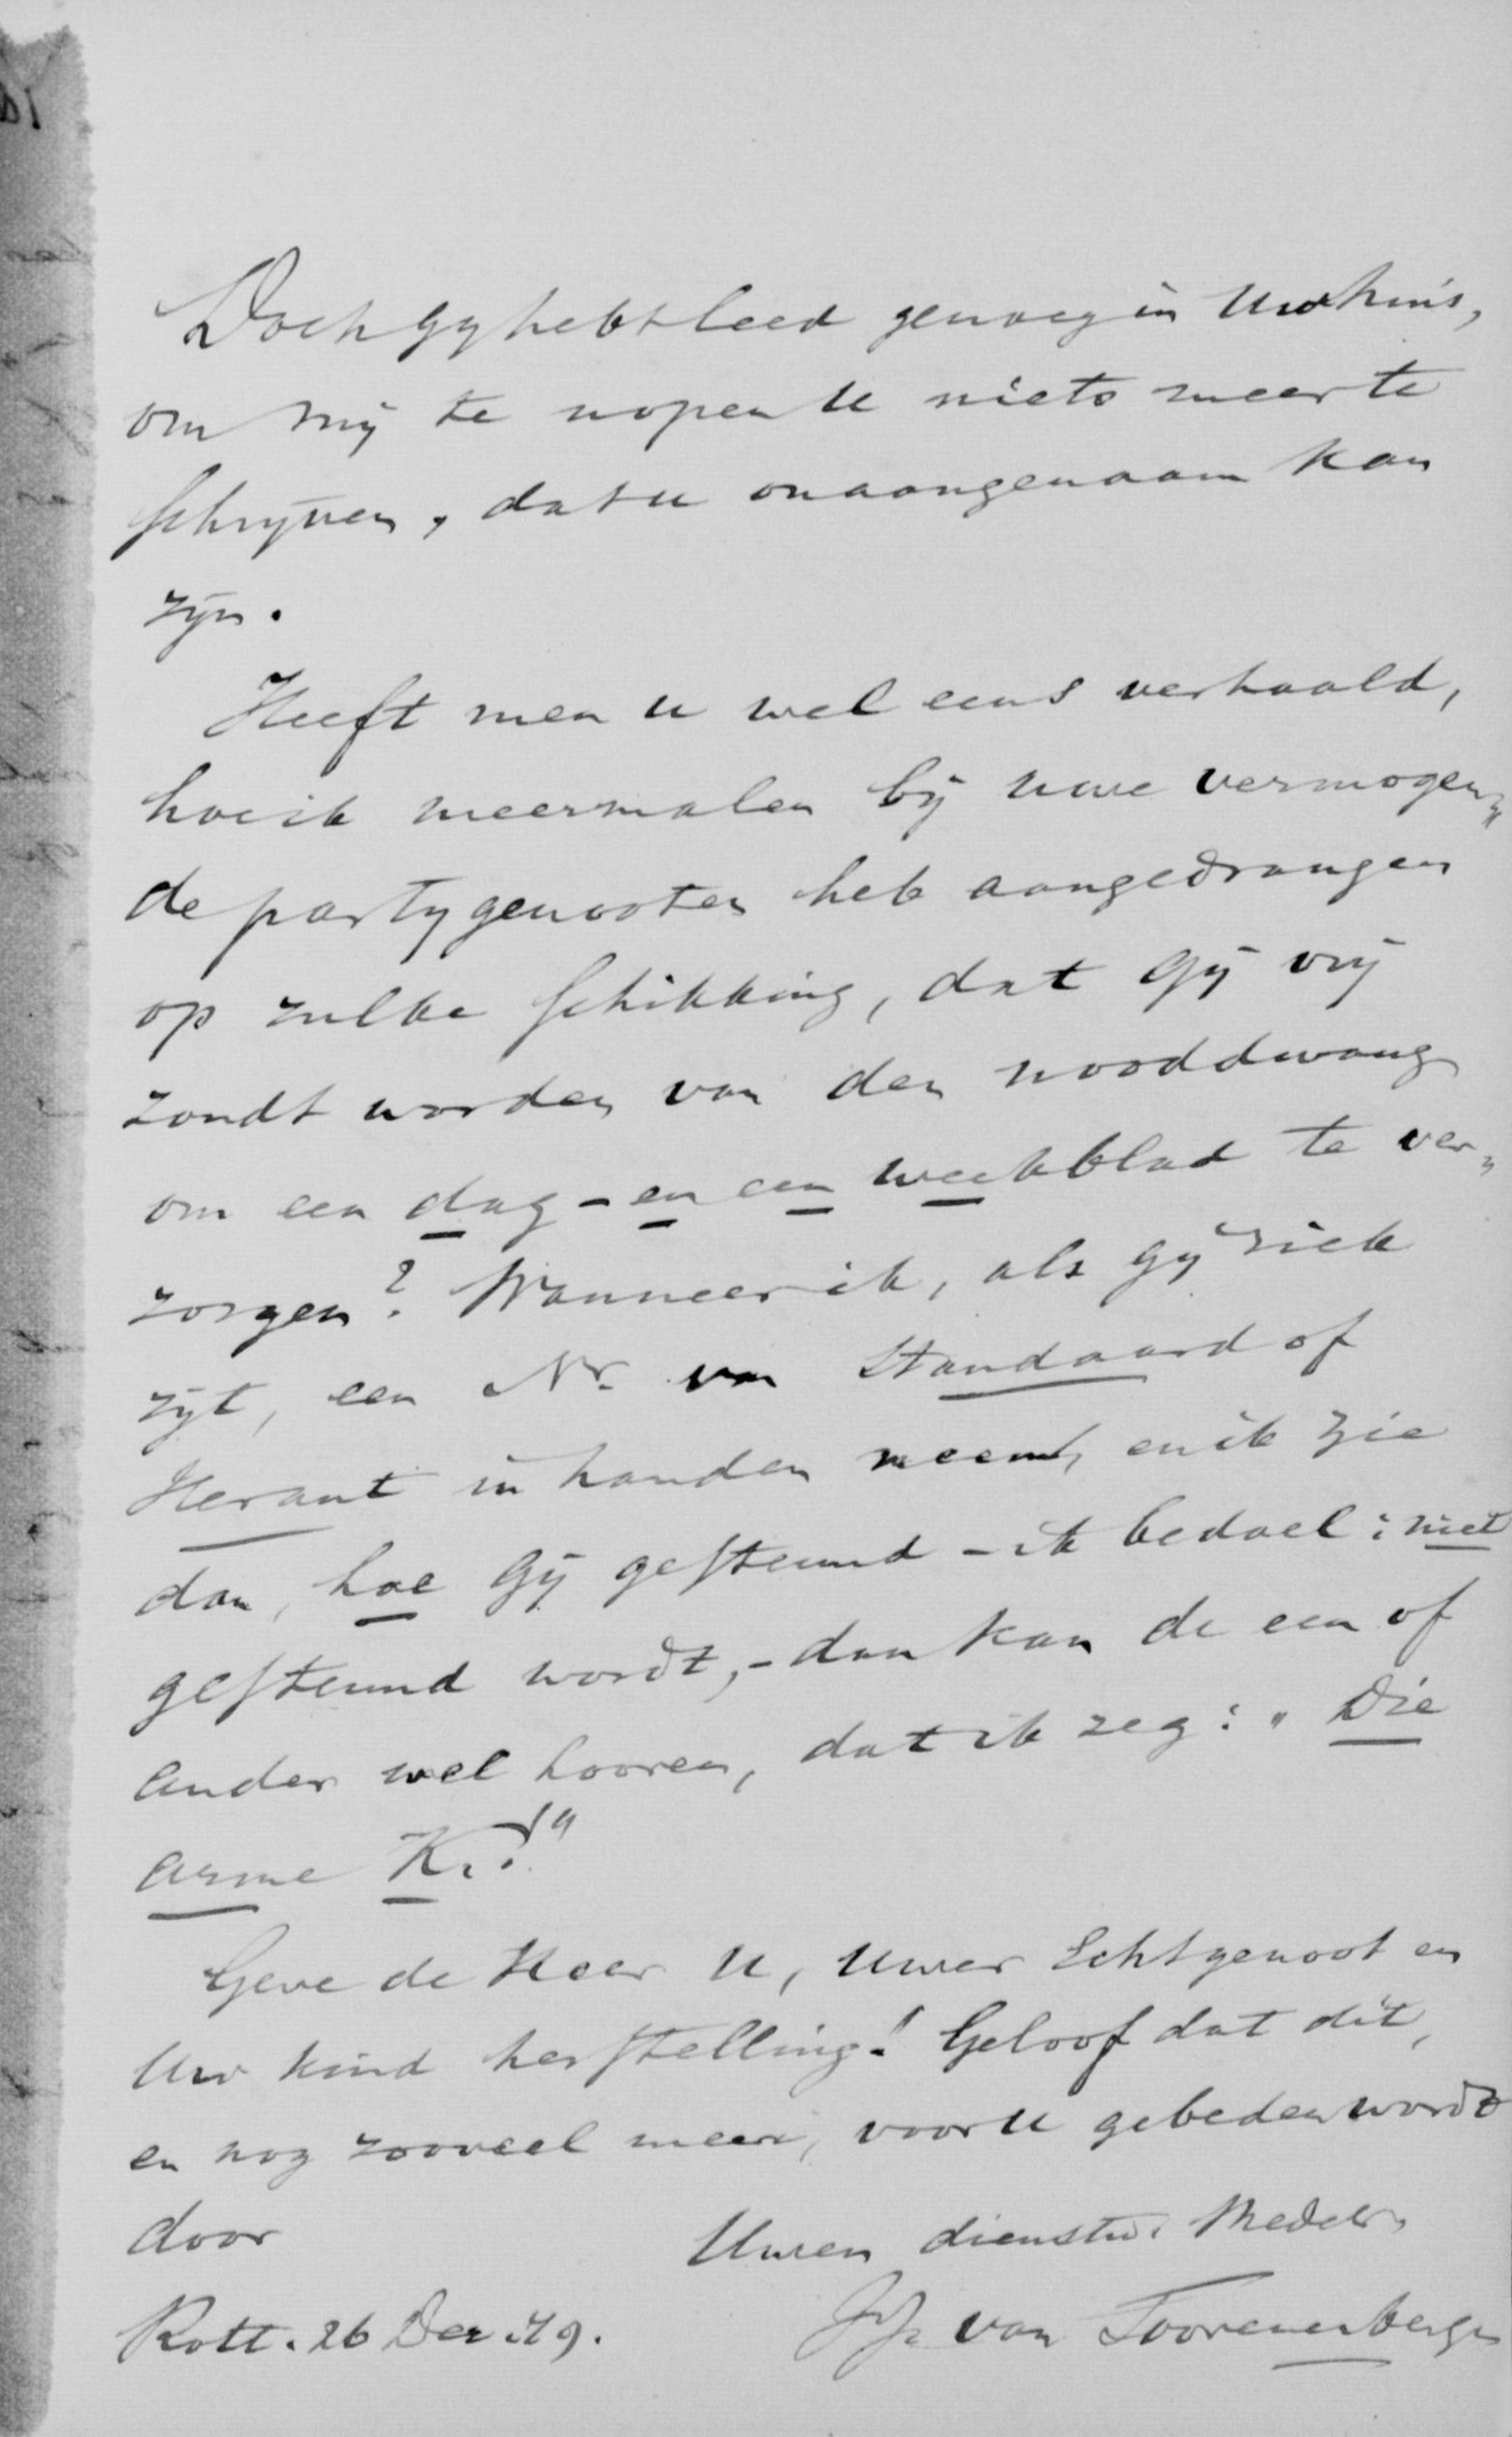 Doch gy hebt leed genoeg in Uw huis,
om mij te nopen U niets meer te
schryven, dat u onaangenaam kan
zyn.
Heeft men u wel eens verhaald,
hoe ik meermalen bij uwe vermogen„
de partygenooten heb aangedrongen
op zulke schikking, dat gij vrij
zoudt worden van den nooddwang
om een dag - en een weekblad te ver„
zorgen? Wanneer ik, als gy ziek
zyt, een Nr. van Standaard of
Heraut in handen neem, en ik zie
dan, hoe Gij gesteund - ik bedoel: niet
gesteund wordt, - dan kan de een of
ander wel hooren, dat ik zeg: „Die
arme K.!"
Geve de Heer U, Uwer Echtgenoot en
Uw kind herstelling! Geloof dat dit,
en nog zooveel meer, voor U gebeden wordt
door
Uwen dienstw. Medebr.
Rott. 26 Dec. 79.
JJ van Toorenenbergen